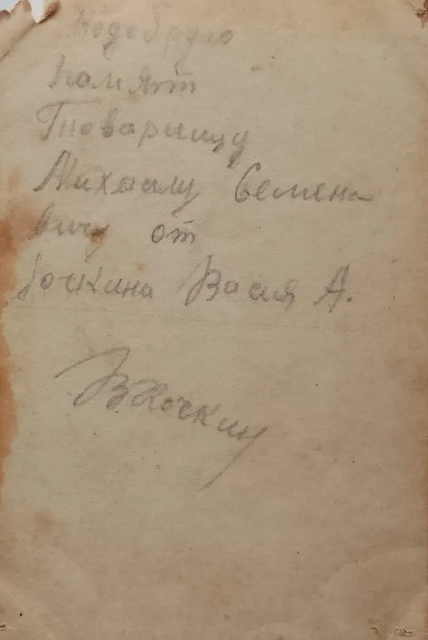 Надобрую
памят
Товарищу
Михаалу Семена-
вичу от
Кочкина Васия А.
В.Кочкин